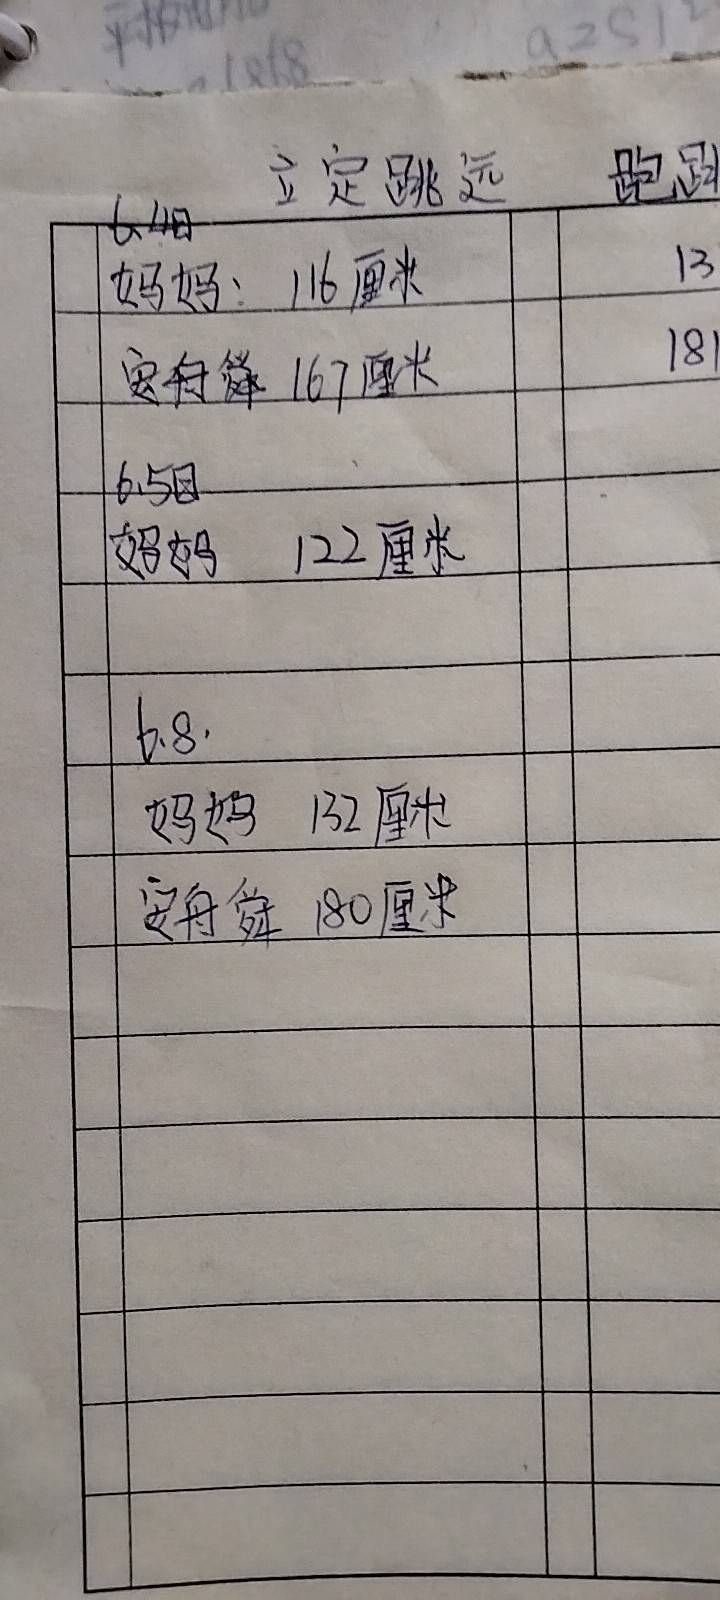 立定跳远 跑跳
6.4日
妈妈: 116厘米 13
安舟舜 167厘米 181
6.5日
妈妈 122厘米
6.8.
妈妈 132厘米
安舟舜 180厘米